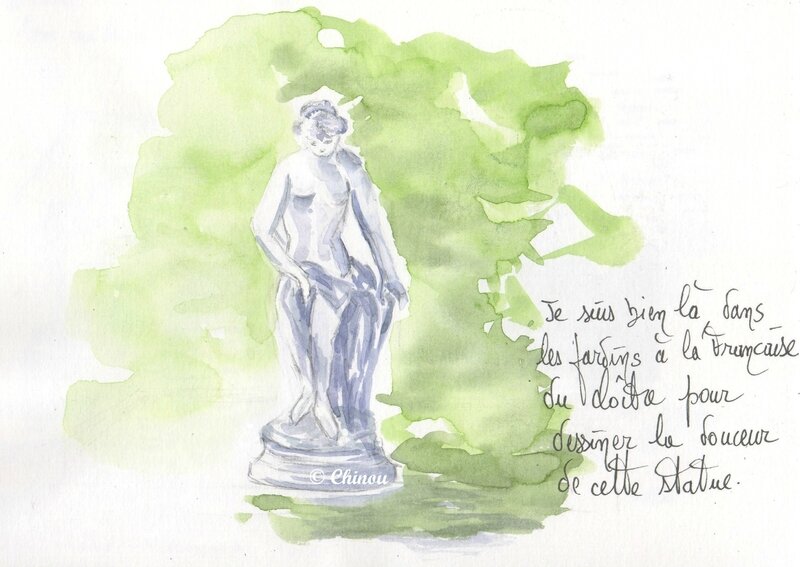 Je suis bien là, dans
les jardins à la Française
du cloître pour
dessiner la douceur
de cette statue.
© Chinou